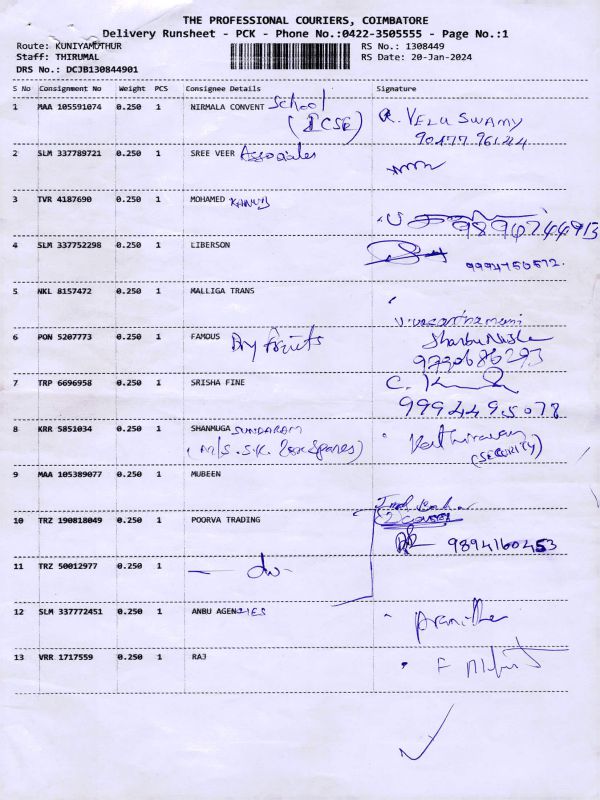 THE PROFESSIONAL COURIERS, COIMBATORE
Delivery Runsheet - PCK - Phone No.:0422-3505555 - Page No.:1
Route: KUNIYAMUTHUR RS No.: 1308449
Staff: THIRUMAL RS Date: 20-Jan-2024
DRS No.: DCJB130844901
S No Consignment No Weight PCS Consignee Details Signature
1 MAA 105591074 0.250 1 NIRMALA CONVENT School
(ICSE) R. VELUSWAMY
2 SLM 337789721 0.250 1 SREE VEER Associates
3 TVR 4187690 0.250 1 MOHAMED
9894744913
4 SLM 337752298 0.250 1 LIBERSON
9994150572.
5 NKL 8157472 0.250 1 MALLIGA TRANS
6 PON 5207773 0.250 1 FAMOUS Dry Fruits
7 TRP 6696958 0.250 1 SRISHA FINE C.
8 KRR 5851034 0.250 1 SHANMUGA SUNDARAM
(M/S. S.K. Spares) (SECURITY)
9 MAA 105389077 0.250 1 MUBEEN
10 TRZ 190818049 0.250 1 POORVA TRADING
9894160453
11 TRZ 50012977 0.250 1 — do -
12 SLM 337772451 0.250 1 ANBU AGENCIES
13 VRR 1717559 0.250 1 RAJ